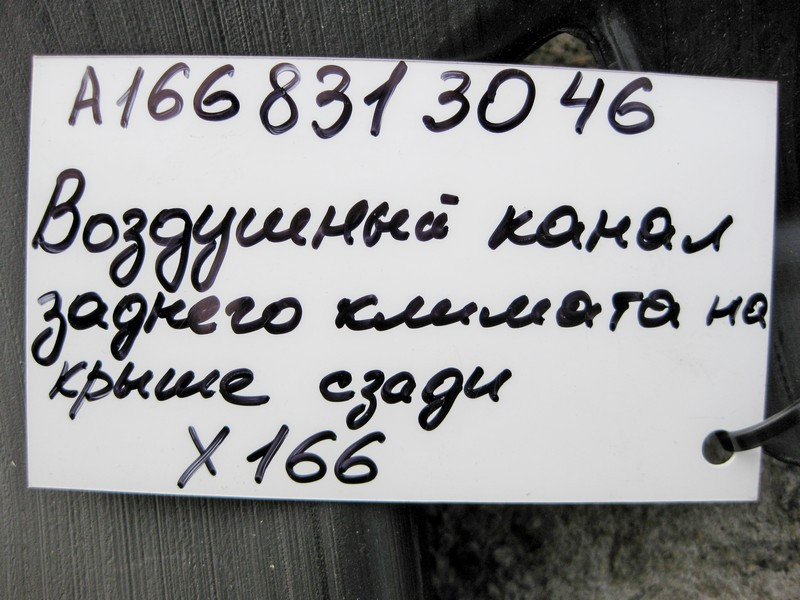 А166 831 30 46
Воздушный канал
заднего климата на
крыше сзади
X 166